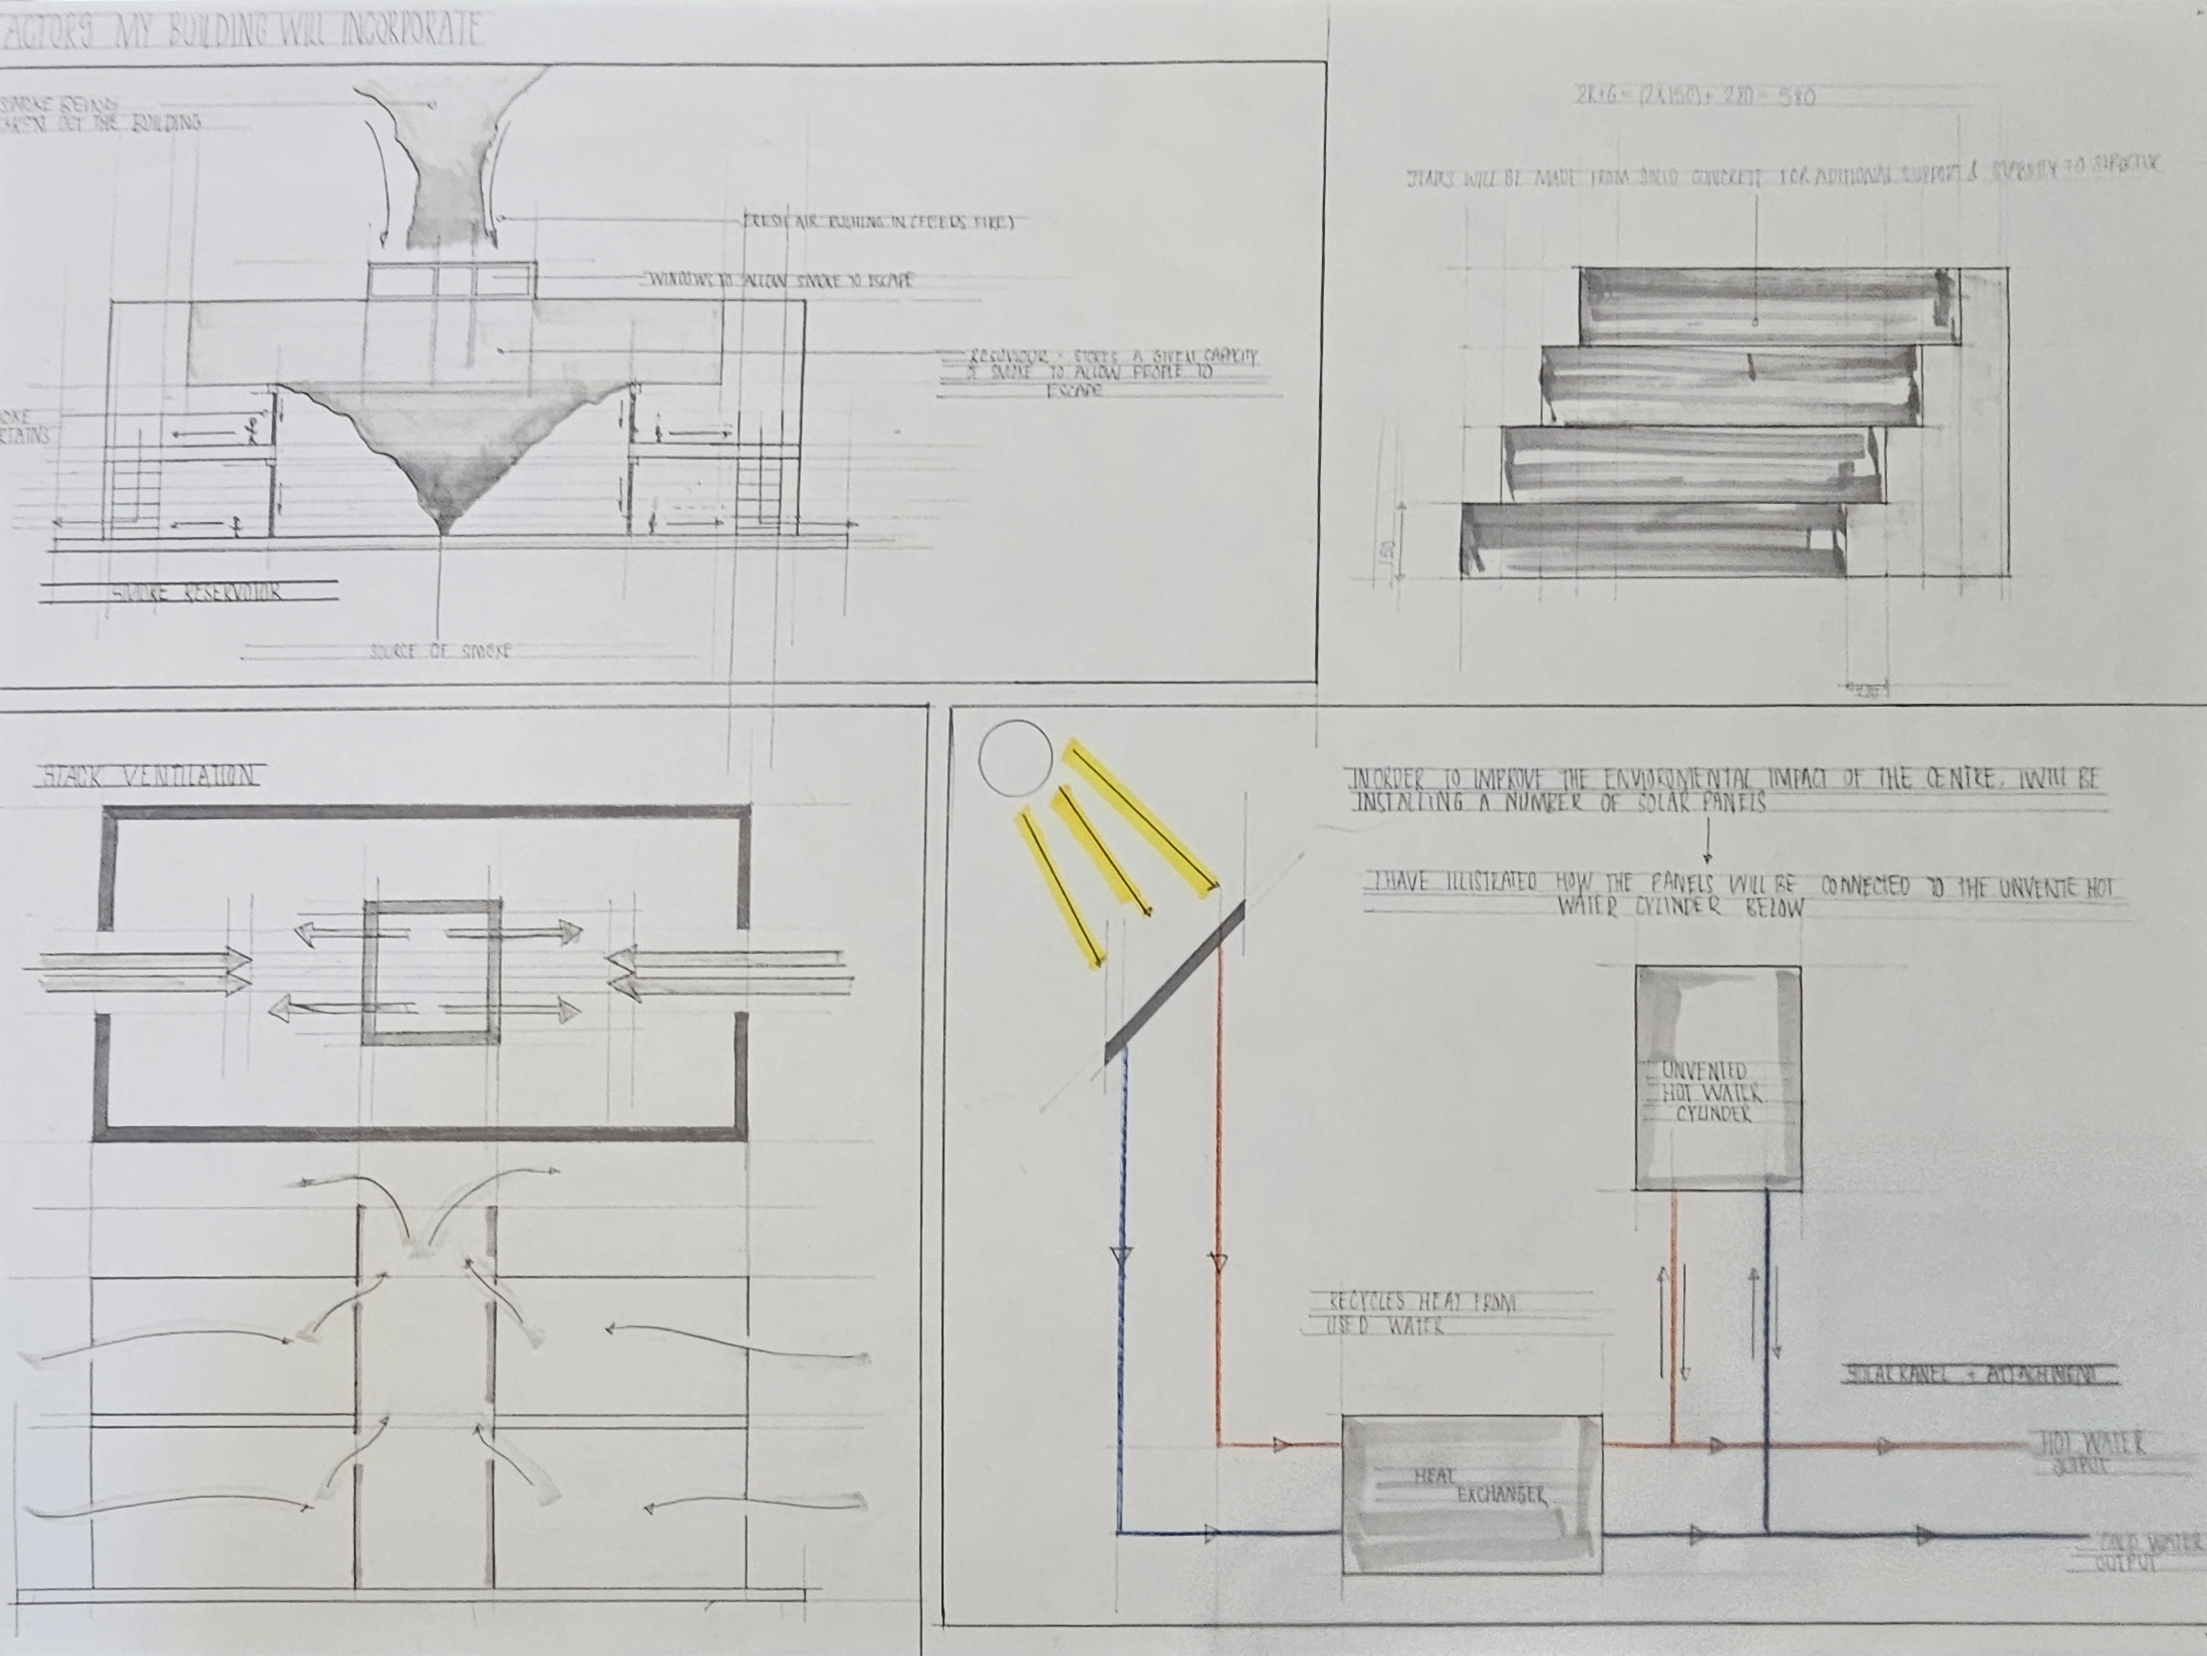 ACTORS MY BUILDING WILL INCORPORATE
SMOKE BEING
TAKEN OUT THE BUILDING
FRESH AIR RUSHING IN (FEEDS FIRE)
WINDOWS TO ALLOW SMOKE TO ESCAPE
STORES A GIVEN CAPACITY
OF SMOKE TO ALLOW PEOPLE TO
ESCAPE
OKE
RTAINS
SMOKE RESERVOIOR
SOURCE OF SMOKE
2R+G = (2X150) + 280 = 580
STAIRS WILL BE MADE FROM SOLID CONCRETE FOR ADITIONAL SUPPORT & TO
150
STACK VENTILATION
IN ORDER TO IMPROVE THE ENVIOROMENTAL IMPACT OF THE CENTRE, I WILL BE
INSTALLING A NUMBER OF SOLAR PANELS
I HAVE ILLISTRATED HOW THE PANELS WILL BE CONNECTED TO THE UNVENTE HOT
WATER CYLINDER BELOW
UNVENTED
HOT WATER
CYLINDER
RECYCLES HEAT FROM
USED WATER
SOLAR PANEL + ATTACHMENT
HEAT
EXCHANGER
HOT WATER
OUTPUT
COLD WATER
OUTPUT